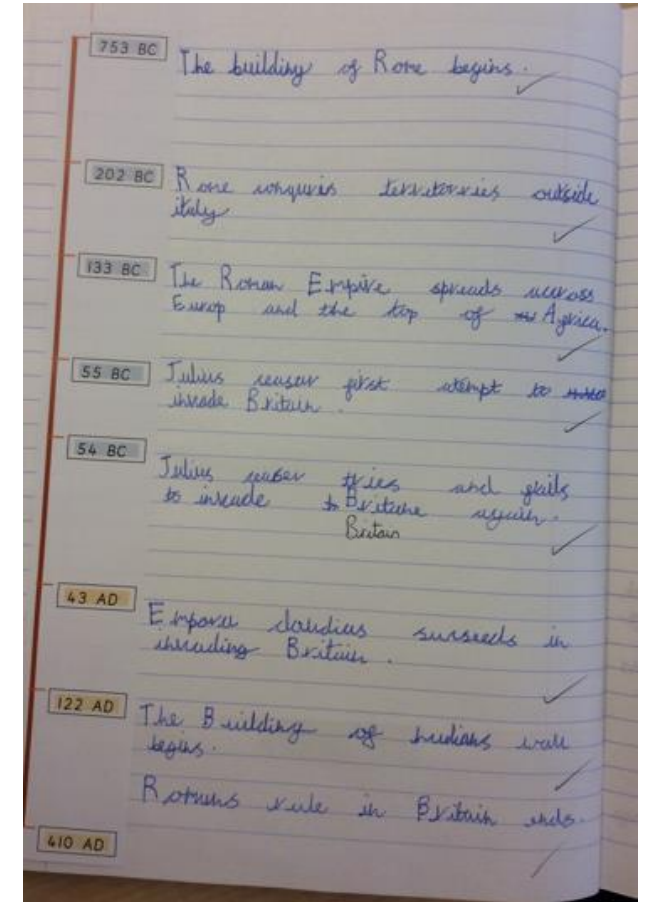 753 BC
The building of Rome begins.
202 BC
Rome conquris territories outside
italy
133 BC
The Roman Empire spreads accross
Europ and the top of Africa.
55 BC
Julius ceaser first atempt to
invade Britain.
54 BC
Julius ceaser tries and fails
to invade Britane again.
Britain
43 AD
Emporer claudius surseeds in
invading Britain.
122 AD
The Building of hudians wall
begins.
Romans rule in Britain ends.
410 AD